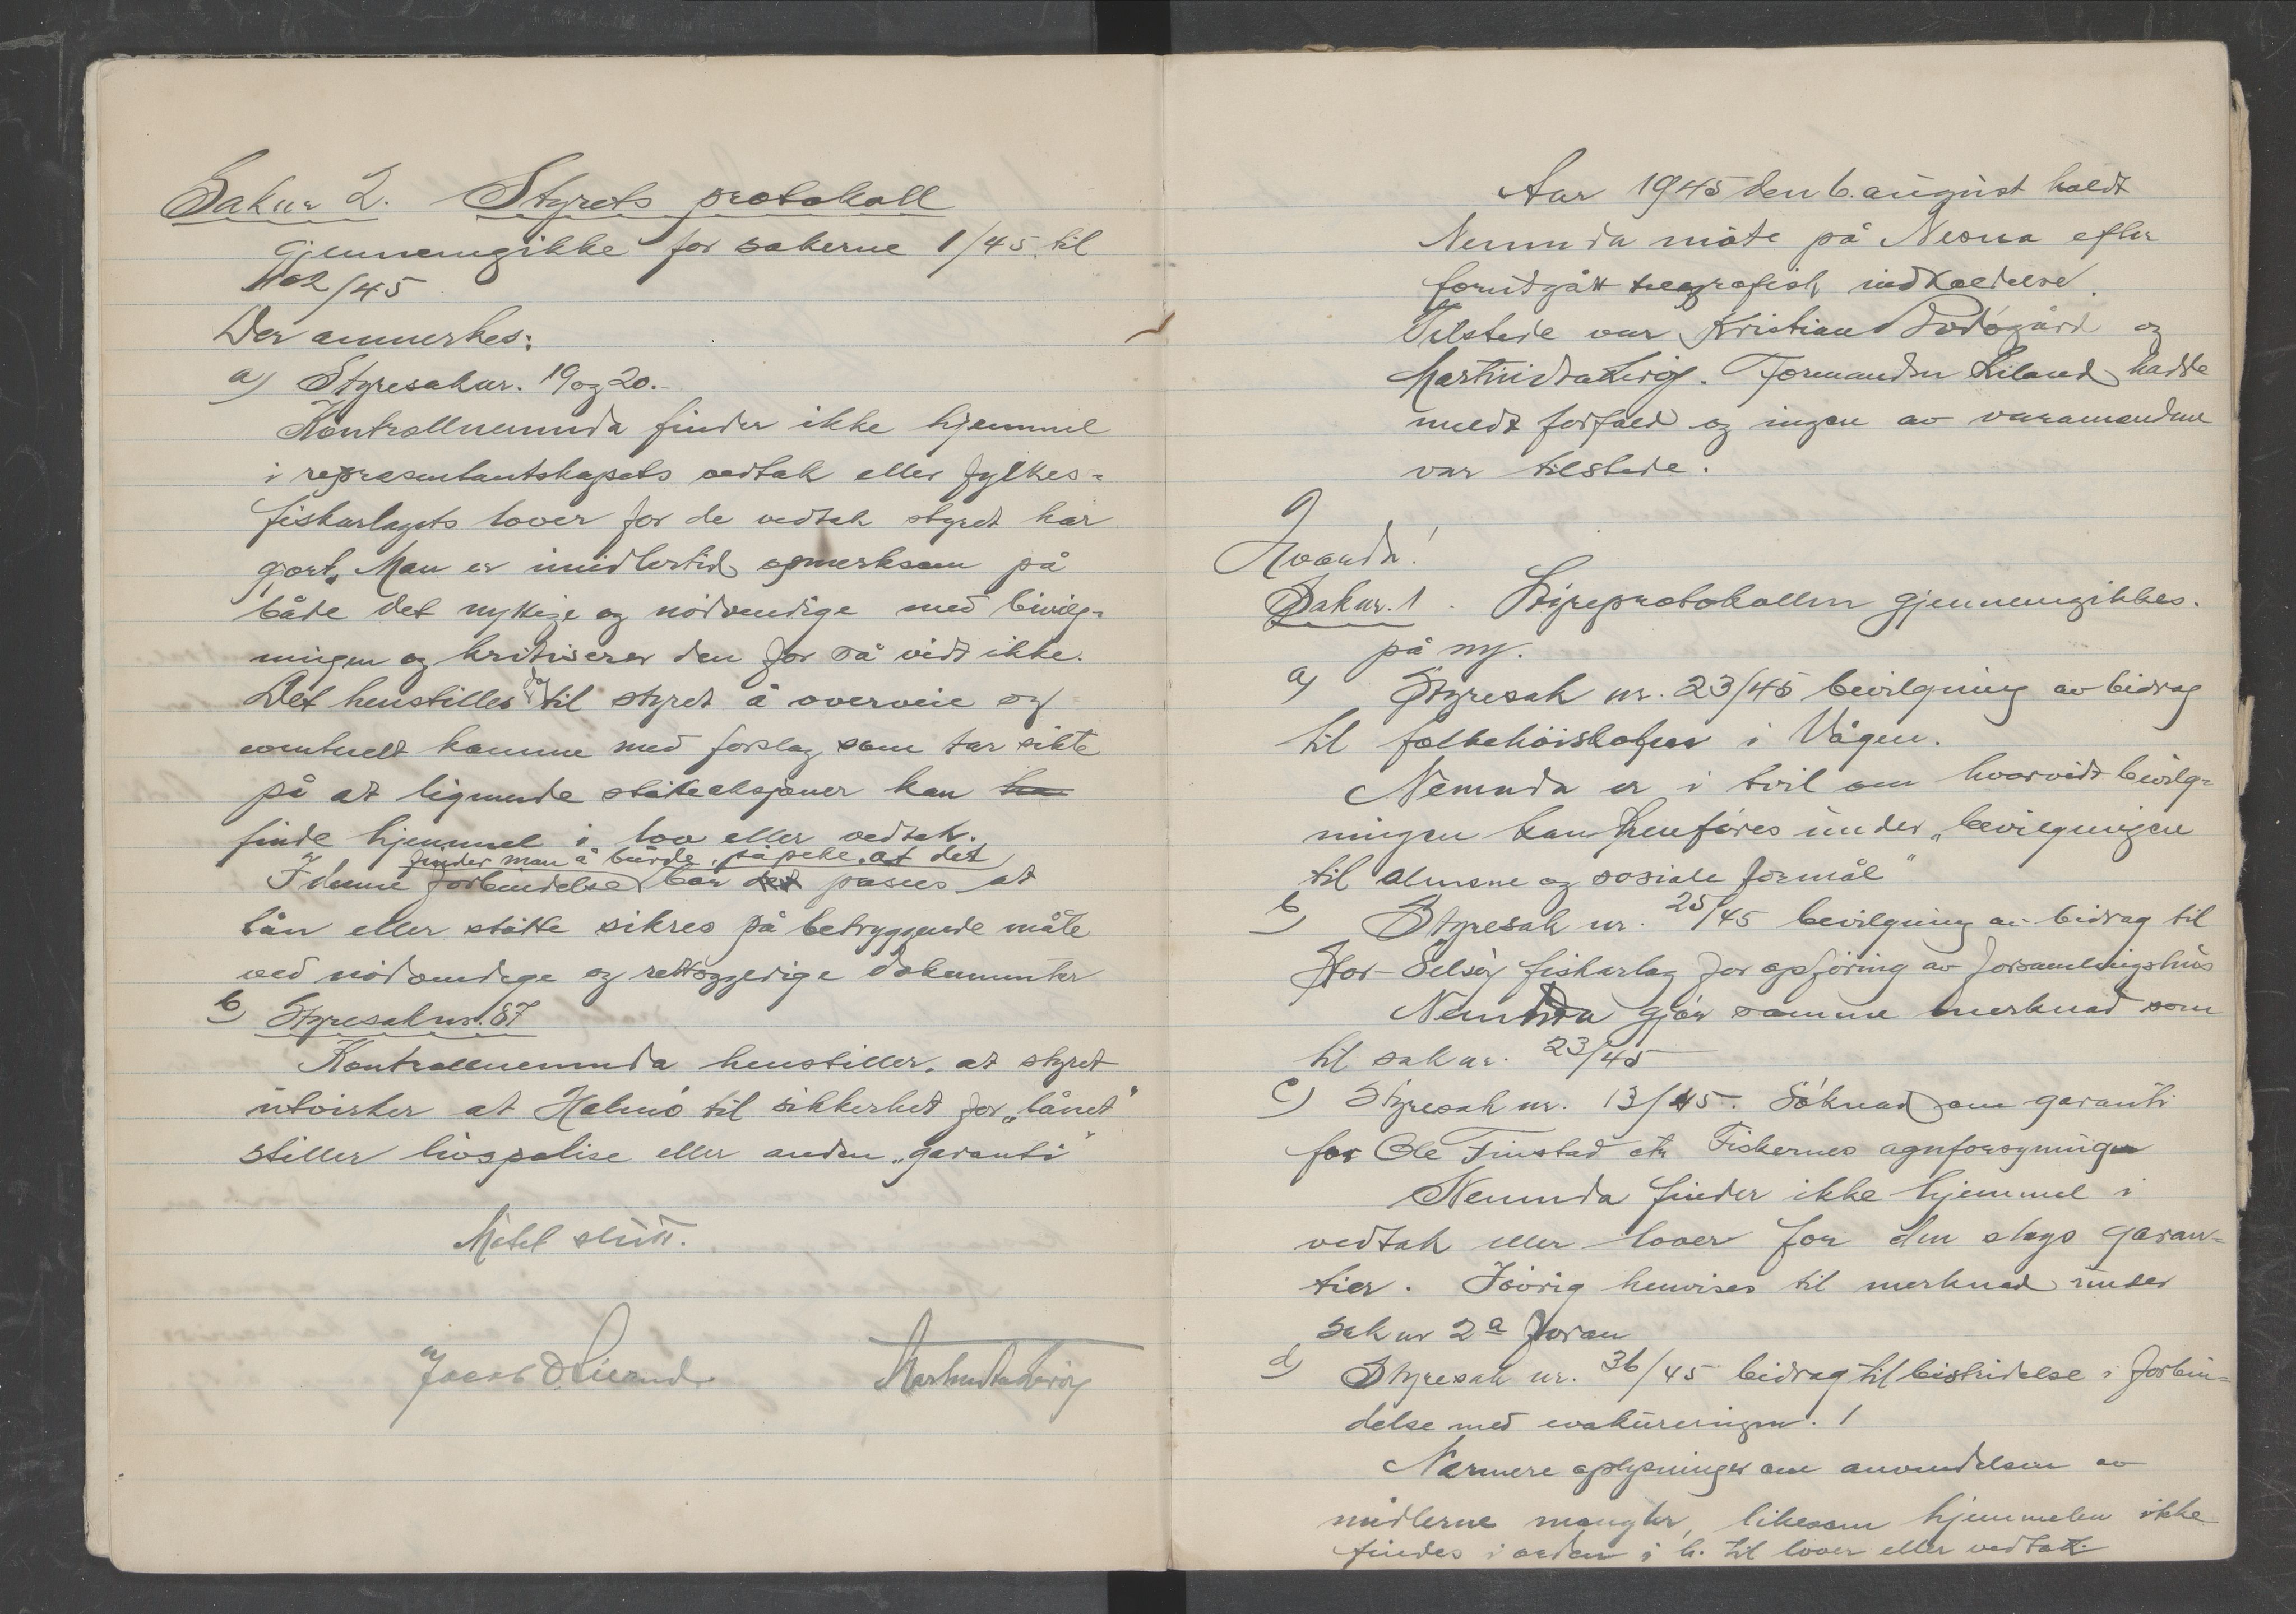 Saknr 2. Styrets protokoll
gjennemgikkes for sakerne 1/45 til
102/45
Der anmerkes:
a) Styresaknr. 19 og 20.-
Kontrollnemnda finder ikke hjemmel
i representantskapets vedtak eller fylkes=
fiskarlagets lover for de vedtak styret har
gjort. Man er imidlertid opmerksom på
både det nyttige og nödvendige med bevilg=
ningen og kritiserer den for så vidt ikke.
Det henstilles dog til styret å overveie og
eventuelt komme med forslag som tar sikte
på at lignende stötteaksjoner kan
finde hjemmel i lov eller vedtak.
finder man å burde påpeke, at det
I denne forbindelse bör det passes at
lån eller stötte sikres på betryggende måte
ved nödvendige og rettsgyldige dokumenter
b) Styresaknr. 87
Kontrollnemnda henstiller, at styret
utvirker at Halmö til sikkerhet for „lånet"
stiller livspolise eller anden „garanti"
Mötet slutt.
Jacob Liland
Aar 1945 den 6. august holdt
Nemnda möte på Nesna efter
forutgått telegrafisk indkaldelse.
Tilstede var Kristian og
Martin . Formanden Liland hadde
meldt forfald og ingen av varamendene
var tilstede.
Saknr. 1. Styreprotokollen gjennemgikkes.
på ny.
a) Styresak nr. 23/45 bevilgning av bidrag
til folkehöiskolen i Vågen.
Nemnda er i tvil om hvorvidt bevilg=
ningen kan henföres under „bevilgningen
til almene og sosiale formål"
b) Styresak nr. 25/45 bevilgning av bidrag til
Stor-Selsöy fiskarlag for opföring av forsamlingshus
Nemnda gjör samme merknad som
til sak nr. 23/45
c) Styresak nr. 13/45. Söknad om garanti
for Ole Finstad Fiskernes agnforsyning
Nemnda finder ikke hjemmel i
vedtak eller lover for den slags garan=
tier. Iövrig henvises til merknad under
sak nr 2a foran
d) Styresak nr. 36/45 bidrag til bistridelse i forbin=
delse med evakueringen.
Nærmere oplysninger om anvendelsen av
midlerne mangler, likesom hjemmelen ikke
findes i h. til lover eller vedtak.